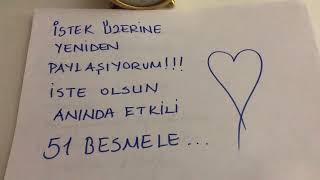 İSTEK ÜZERİNE
YENİDEN
PAYLAŞIYORUM!!!
İSTE OLSUN
ANINDA ETKİLİ
51 BESMELE...